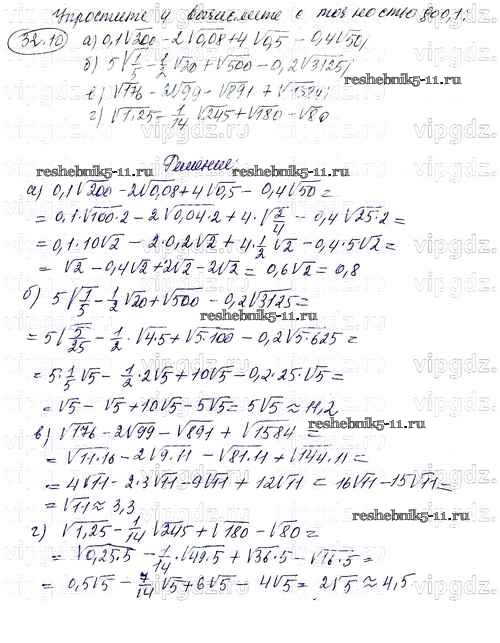 Упростите и вычислите с точностью до 0,1:
32.10 а) 0,1√200 - 2√0,08 + 4√0,5 - 0,4√50;
б) 5√1/5 - 1/2√20 + √500 - 0,2√3125;
в) √176 - 2√99 - √891 + √1584;
г) √1,25 - 1/14 √245 + √180 - √80
reshebnik5-11.ru reshebnik5-11.ru
Решение:
а) 0,1√200 - 2√0,08 + 4√0,5 - 0,4√50 =
= 0,1·√100·2 - 2√0,04·2 + 4·√2/4 - 0,4√25·2 =
= 0,1·10√2 - 2·0,2√2 + 4·1/2√2 - 0,4·5√2 =
= √2 - 0,4√2 + 2√2 - 2√2 = 0,6√2 = 0,8
б) 5√1/5 - 1/2√20 + √500 - 0,2√3125 =
reshebnik5-11.ru
= 5√5/25 - 1/2·√4·5 + √5·100 - 0,2√5·625 =
= 5·1/5√5 - 1/2·2√5 + 10√5 - 0,2·25·√5 =
= √5 - √5 + 10√5 - 5√5 = 5√5 ≈ 11,2
reshebnik5-11.ru
в) √176 - 2√99 - √891 + √1584 =
= √11·16 - 2√9·11 - √81·11 + √144·11 =
= 4√11 - 2·3√11 - 9√11 + 12√11 = 16√11 - 15√11 =
= √11 ≈ 3,3
reshebnik5-11.ru
г) √1,25 - 1/14√245 + √180 - √80 =
= √0,25·5 - 1/14·√49·5 + √36·5 - √16·5 =
= 0,5√5 - 7/14√5 + 6√5 - 4√5 = 2√5 ≈ 4,5